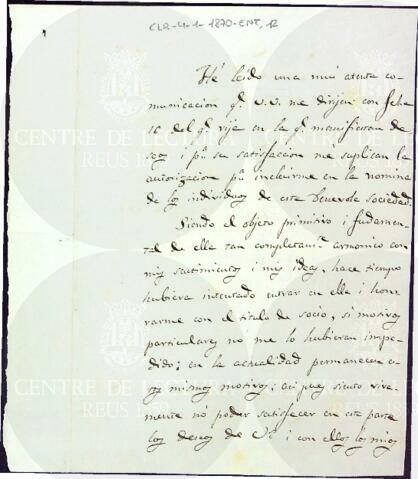 CLR-4-1-1870-ENT, 12
Hé leido una muy atenta co-
municacion q.e V.V. me dirijen con fecha
16 del q.e rije en la q.e manifiestan de-
seos i p.a su satisfaccion me suplican la
autorizacion p.a incluirme en la nomina
de los individuos de esta benevole sociedad.
Siendo el objeto primitivo i fudamen-
tal de ella tan completam.te armonico con
mis sentimientos i mis ideas, hace tiempo
hubiera intentado entrar en ella i hon-
rarme con el titulo de socio, si motivos
particulares no me lo hubieran impe-
dido; en la actualidad permanecen e-
sos mismos motivos; asi pues siento viva-
mente no poder satisfacer en esta parte
los deseos de VV. i con ellos los mios
CENTRE DE LECTURA
REUS
CENTRE DE LECTURA
REUS